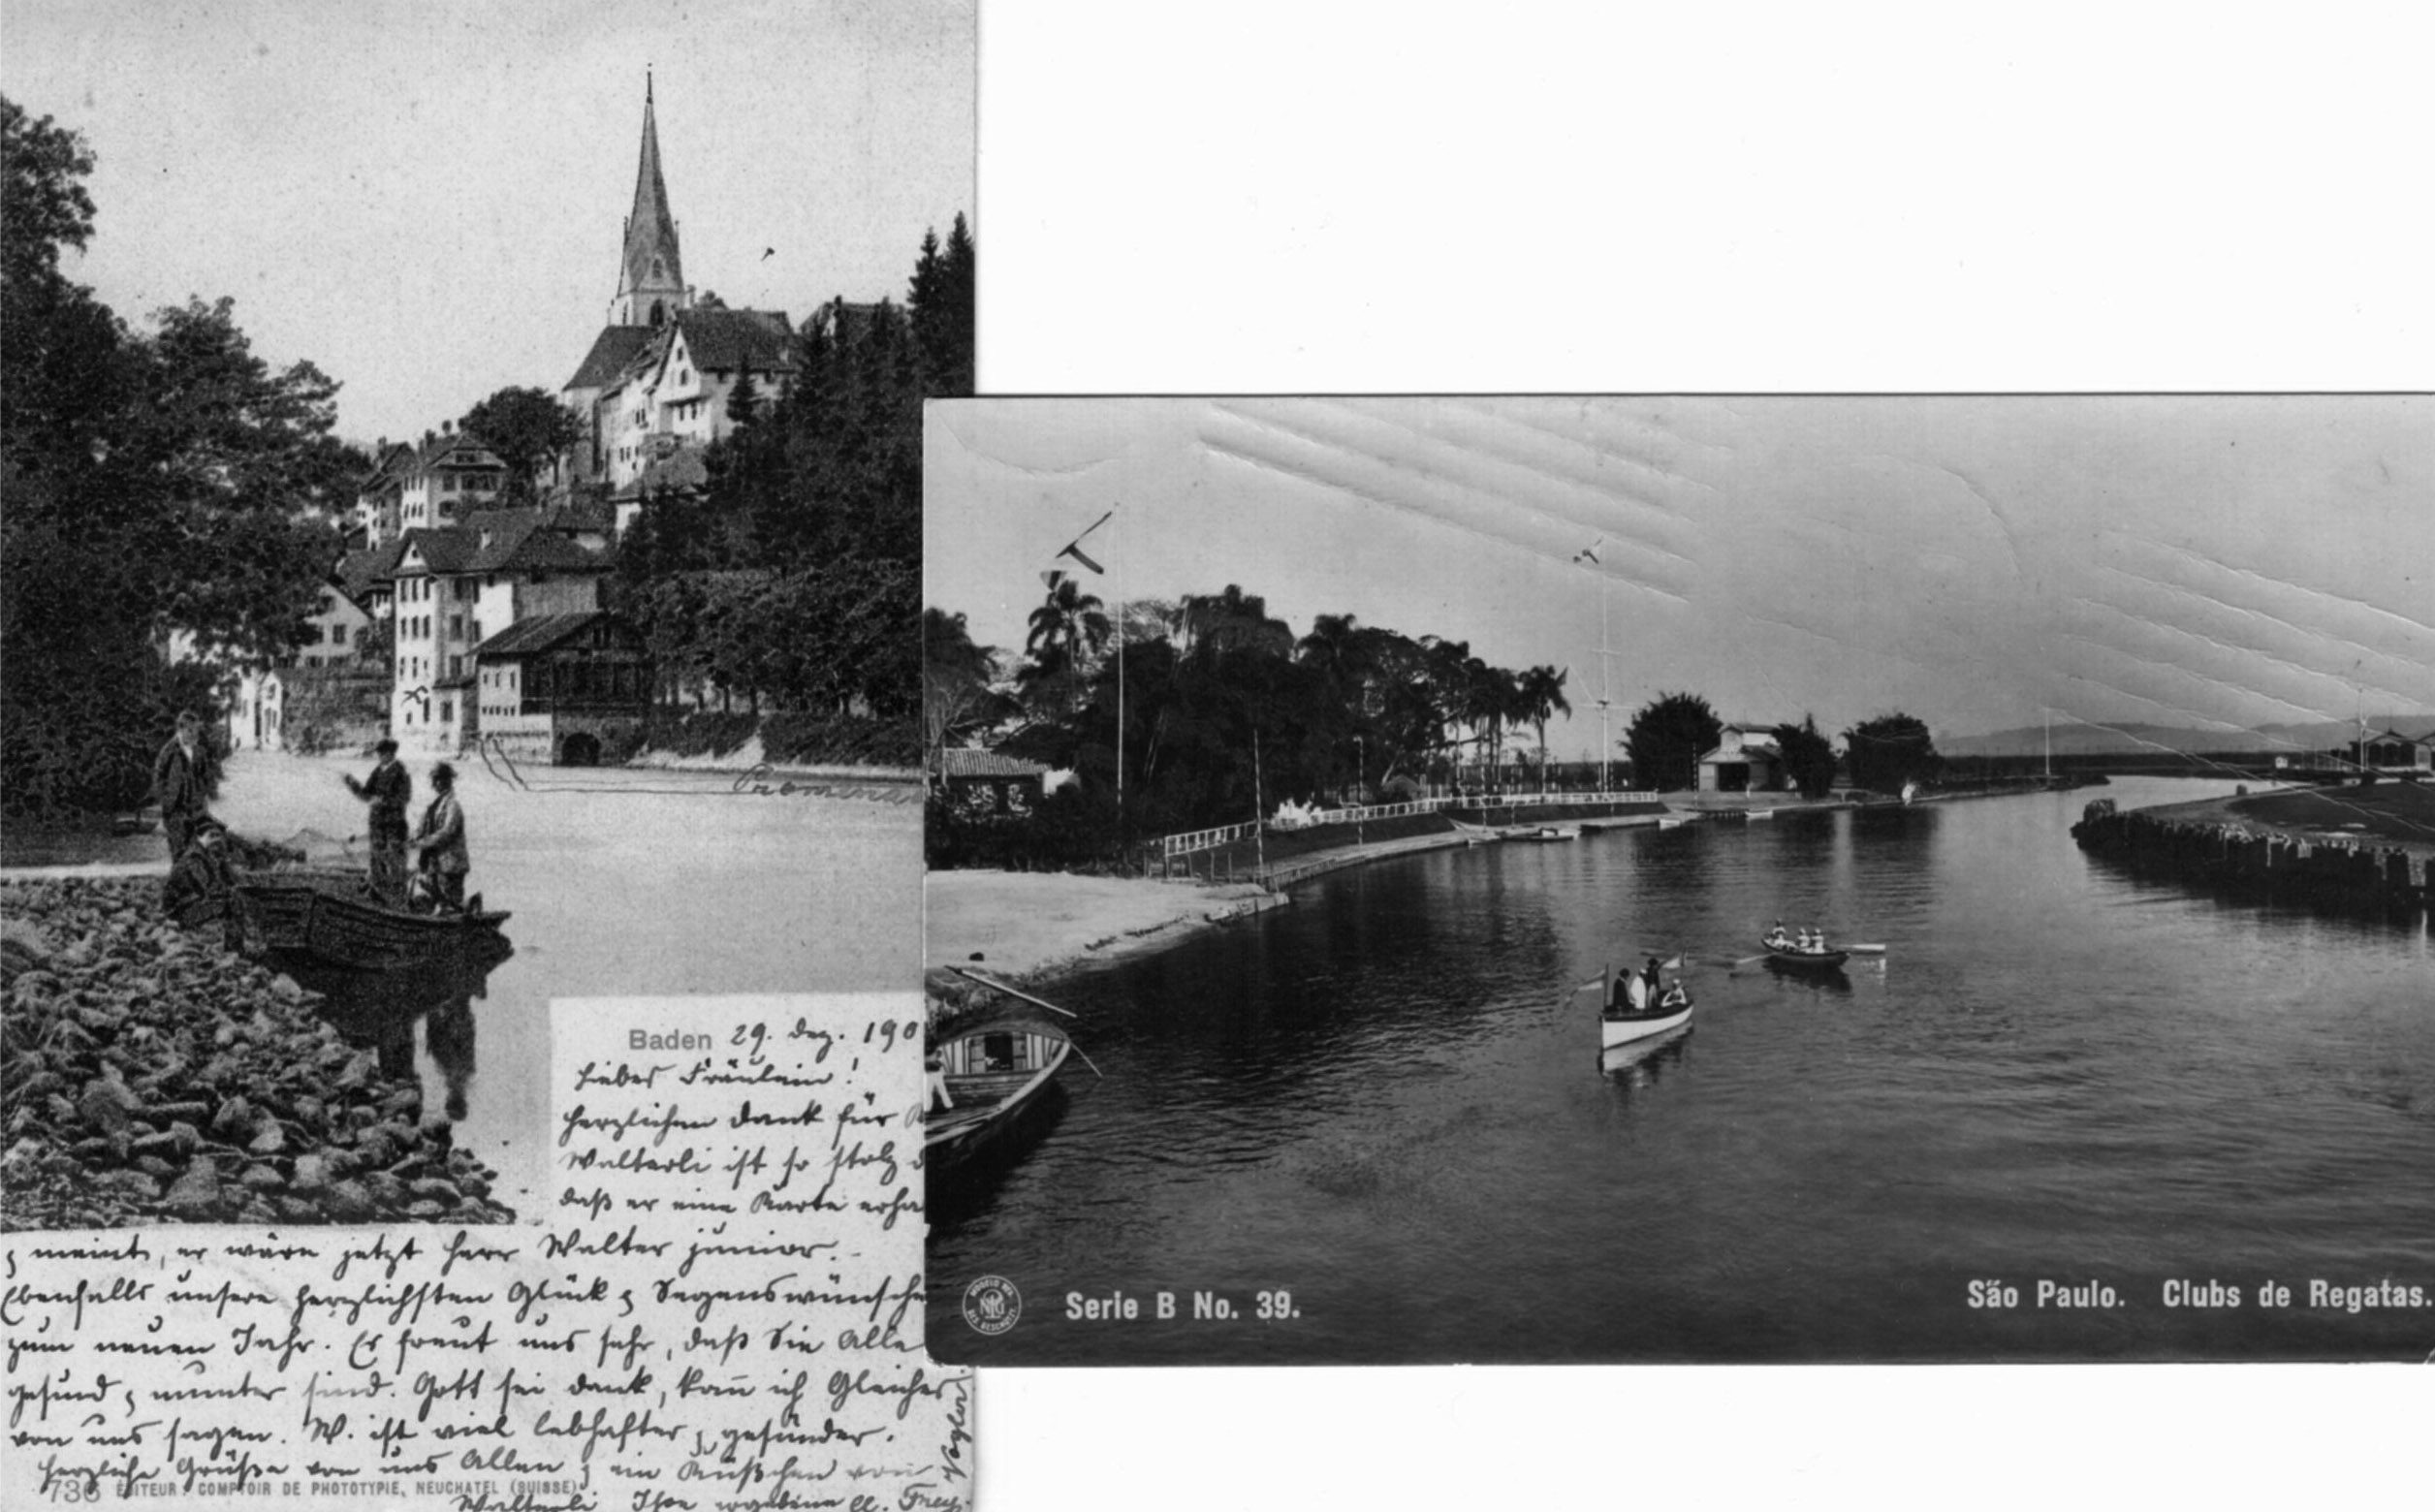 Promena
Baden 29. Dez. 190
Liebes Fräulein!
Herzlichen Dank für
Walterli ist so stolz d
daß er eine Karte erha
& meint, er wäre jetzt Herr Walter junior.-
Ebenfalls unsere herzlichsten Glück & Segenswünsche
zum neuen Jahr. Es freut uns sehr, daß Sie Alle
gesund & munter sind. Gott sei Dank, kann ich Gleiches
von uns sagen. W. ist viel lebhafter & gesünder.
Herzliche Grüße von uns Allen & ein Küßchen von
Walterli Ihre ergebene Frey-
Vogler.
736 EDITEUR: COMPTOIR DE PHOTOTYPIE, NEUCHATEL (SUISSE)
Serie B No. 39.
São Paulo. Clubs de Regatas.